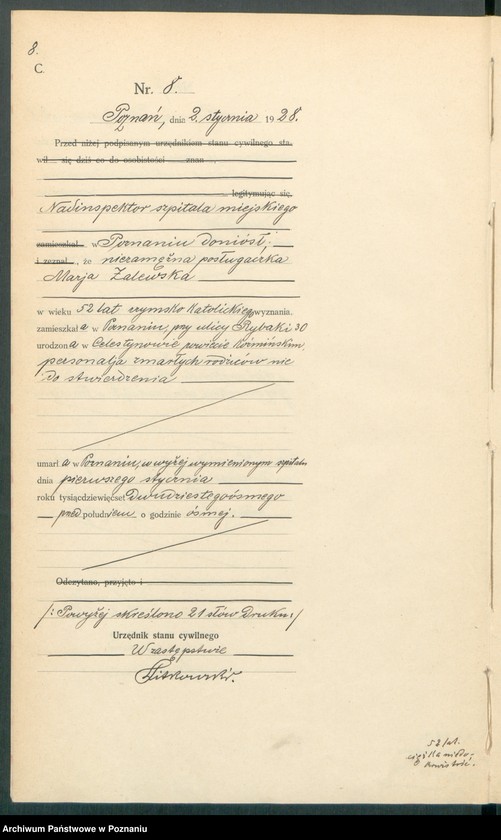 8.
C.
Nr. 8.
Poznań, dnia 2. stycznia 1928.
Przed niżej podpisanym urzędnikiem stanu cywilnego sta-
wił się dziś co do osobistości znan
legitymując się,
Nadinspektor szpitala miejskiego
zamieszkał w Poznaniu doniósł,
i zeznał, że niezamężna posługaczka
Marja Zalewska
w wieku 52 lat rzymsko Katolickiego wyznania,
zamieszkała w Poznaniu, przy ulicy Rybaki 30
urodzona w Celestynowie powiecie Koźmińskim,
personalja zmarłych rodziców nie
do stwierdzenia
umarła w Poznaniu, w wyżej wymienionym szpitalu
dnia pierwszego stycznia
roku tysiącdziewięćset Dwudziestegoósmego
przed południem o godzinie ósmej.
Odczytano, przyjęto i
/: Powyżej skreślono 21 słów Druku :/
Urzędnik stanu cywilnego
W zastępstwie
52 lat.
Archiwum Państwowe w Poznaniu